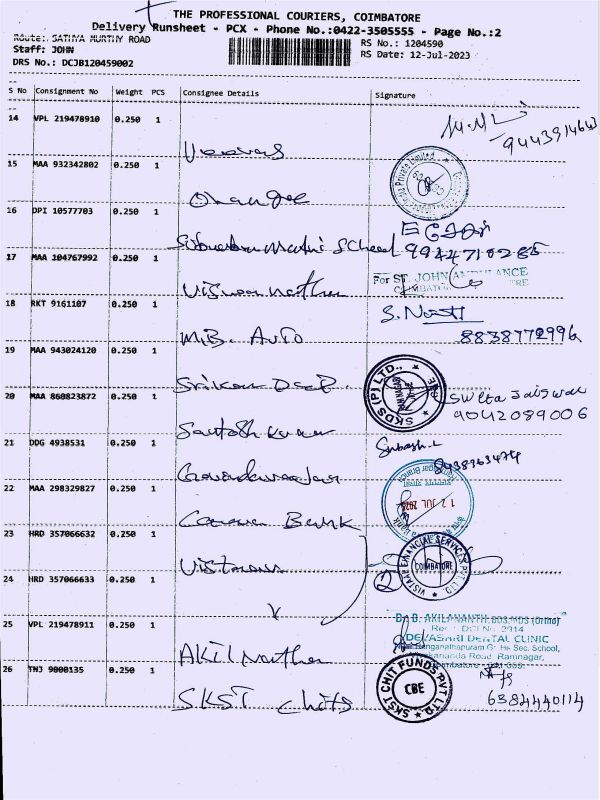 THE PROFESSIONAL COURIERS, COIMBATORE
Delivery Runsheet - PCX - Phone No.:0422-3505555 - Page No.:2
Route: SATHYA MURTHY ROAD
Staff: JOHN
DRS No.: DCJB120459002
RS No.: 1204590
RS Date: 12-Jul-2023
S No Consignment No Weight PCS Consignee Details Signature
14 VPL 219478910 0.250 1
9443914643
15 MAA 932342802 0.250 1
Orange
16 DPI 10577703 0.250 1
Suburban Matri School 9944710285
17 MAA 104767992 0.250 1
Viswanathan
For ST. JOHN AMBULANCE
COIMBATORE CENTRE
18 RKT 9161107 0.250 1
M.B. Auto
8838772996
19 MAA 943024120 0.250 1
SKDS (P) LTD.,
Sweta Jaiswal
9042089006
20 MAA 860823872 0.250 1
Santosh Kumar
Subash.L
9438363474
21 DDG 4938531 0.250 1
22 MAA 298329827 0.250 1
Canara Bank
12 JUL 2023
23 HRD 357066632 0.250 1
Vistaar
VISTAAR FINANCIAL SERVICES PVT. LTD.
COIMBATORE
2
24 HRD 357066633 0.250 1
25 VPL 219478911 0.250 1
Akil Nathan
Dr. B. AKILANANTH, BDS, MDS (Ortho)
Reg. DCI No. 2914
DEVASARI DENTAL CLINIC
Ranganathapuram G. Hr. Sec. School,
Vivekananda Road, Ramnagar,
Coimbatore
26 TNJ 9000135 0.250 1
SKST Chits
SKST CHIT FUNDS PVT LTD.
CBE
6384440114